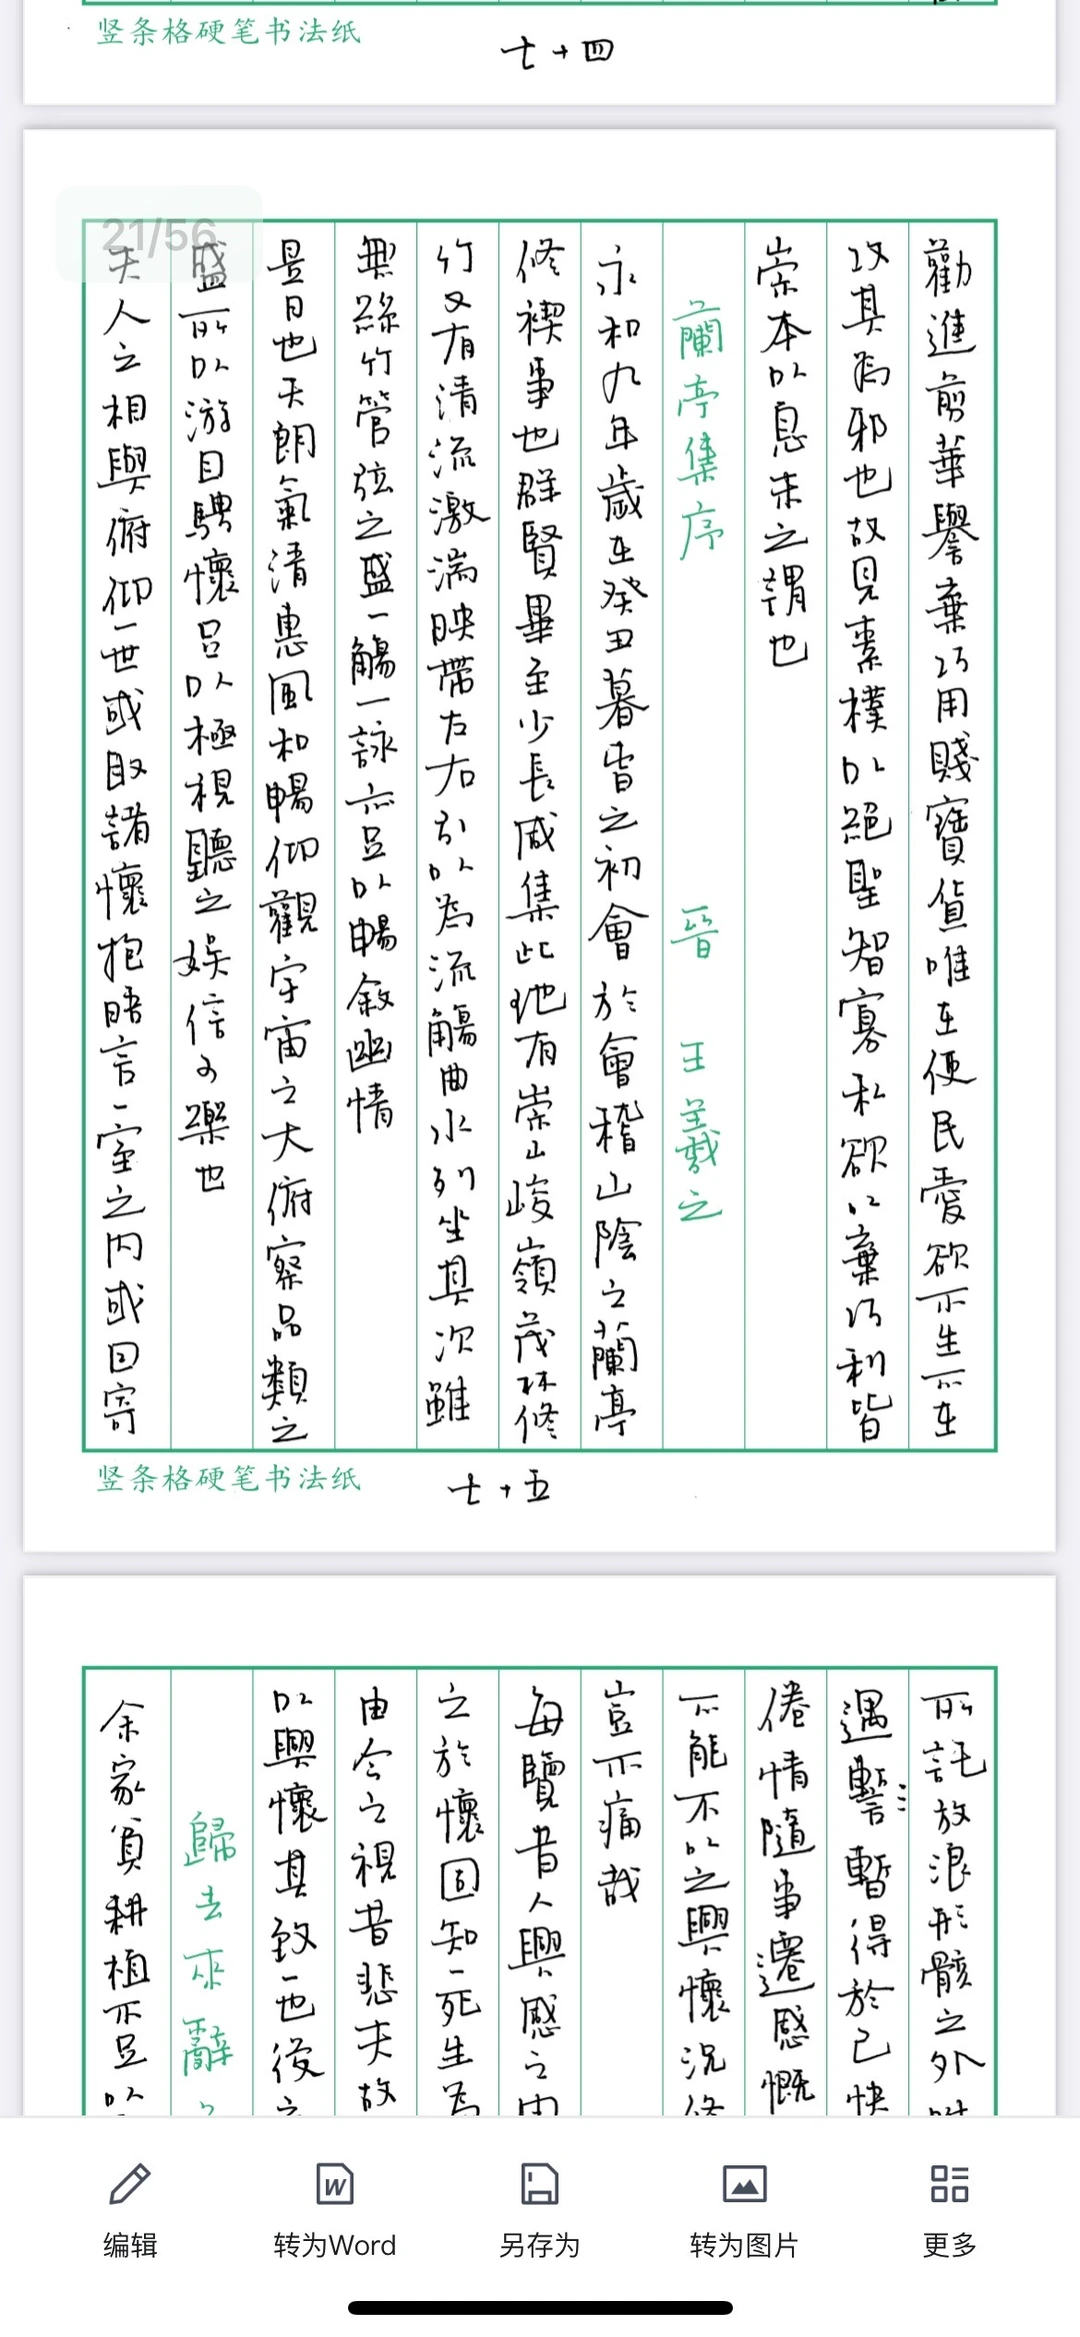 竖条格硬笔书法纸
七十四
21/56
勸進剪華譽棄巧用賤寶貨唯在便民愛欲不生不在
攻其為邪也故見素樸以絕聖智寡私欲以棄巧利皆
崇本以息末之謂也
蘭亭集序 晉 王羲之
永和九年歲在癸丑暮春之初會於會稽山陰之蘭亭
修禊事也群賢畢至少長咸集此地有崇山峻嶺茂林修
竹又有清流激湍映帶左右引以為流觴曲水列坐其次雖
無絲竹管弦之盛一觴一詠亦足以暢敘幽情
是日也天朗氣清惠風和暢仰觀宇宙之大俯察品類之
盛所以游目騁懷足以極視聽之娛信可樂也
夫人之相與俯仰一世或取諸懷抱晤言一室之內或因寄
竖条格硬笔书法纸
七十五
所託放浪形骸之外
遇暫得於己快
倦情隨事遷感慨
不能不以之興懷況修
豈不痛哉
每覽昔人興感之由
之於懷固知一死生為
由今之視昔悲夫故
以興懷其致一也後之
歸去來辭
余家貧耕植不足以
编辑
转为Word
另存为
转为图片
更多